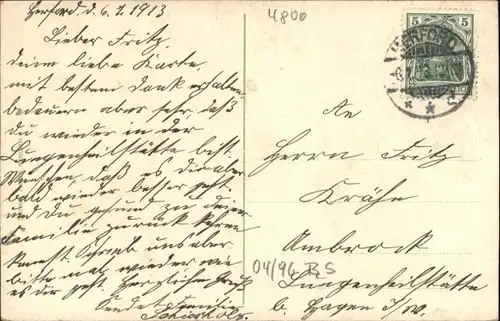 Herford. d. 6.1.1913
Lieber Fritz,
deine liebe Karte
mit bestem Dank erhalten,
bedauern aber sehr, daß
du wieder in der
Lungenheilstätte bist
Wünschen, daß es dir aber
bald wieder besser geht
und du gesund zu deiner
Familie zurück kehren
kannst. Schreib uns aber
bitte mal wieder wie
es dir geht. Herzliche Grüße
Sendet Familie
4800
5
HERFORD
An
Herrn Fritz
Krähe
Ambrock
Lungenheilstätte
b. Hagen i/W.
04/96 BS